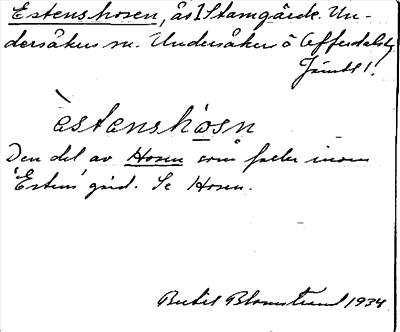 Estenshosen, ås i Stamgärde. Un-
dersåkers sn. Undersåkers o Offerdals tg
Jämtl.
èstenshòsn
Den del av Hosen som faller inom
'Estens' gård. Se Hosen.
Bertil Blomstrand 1934